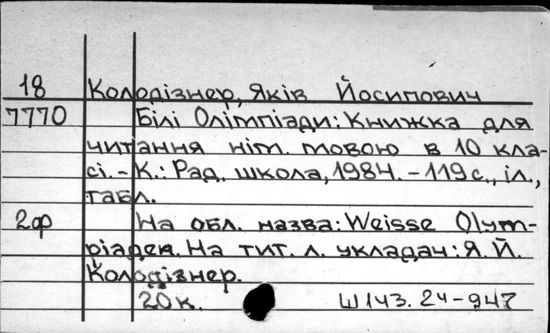 18 Колодізнер, Яків Йосипович
7770 Білі Олімпіади: Книжка для
читання нім. мовою в 10 кла-
сі. - К.: Рад. школа, 1984. - 119 с., іл.,
табл.
2ф На обл. назва: Weisse Olym-
piaden. На тит. л. укладач: Я. Й.
Колодізнер.
20 к. Ш143.24-947